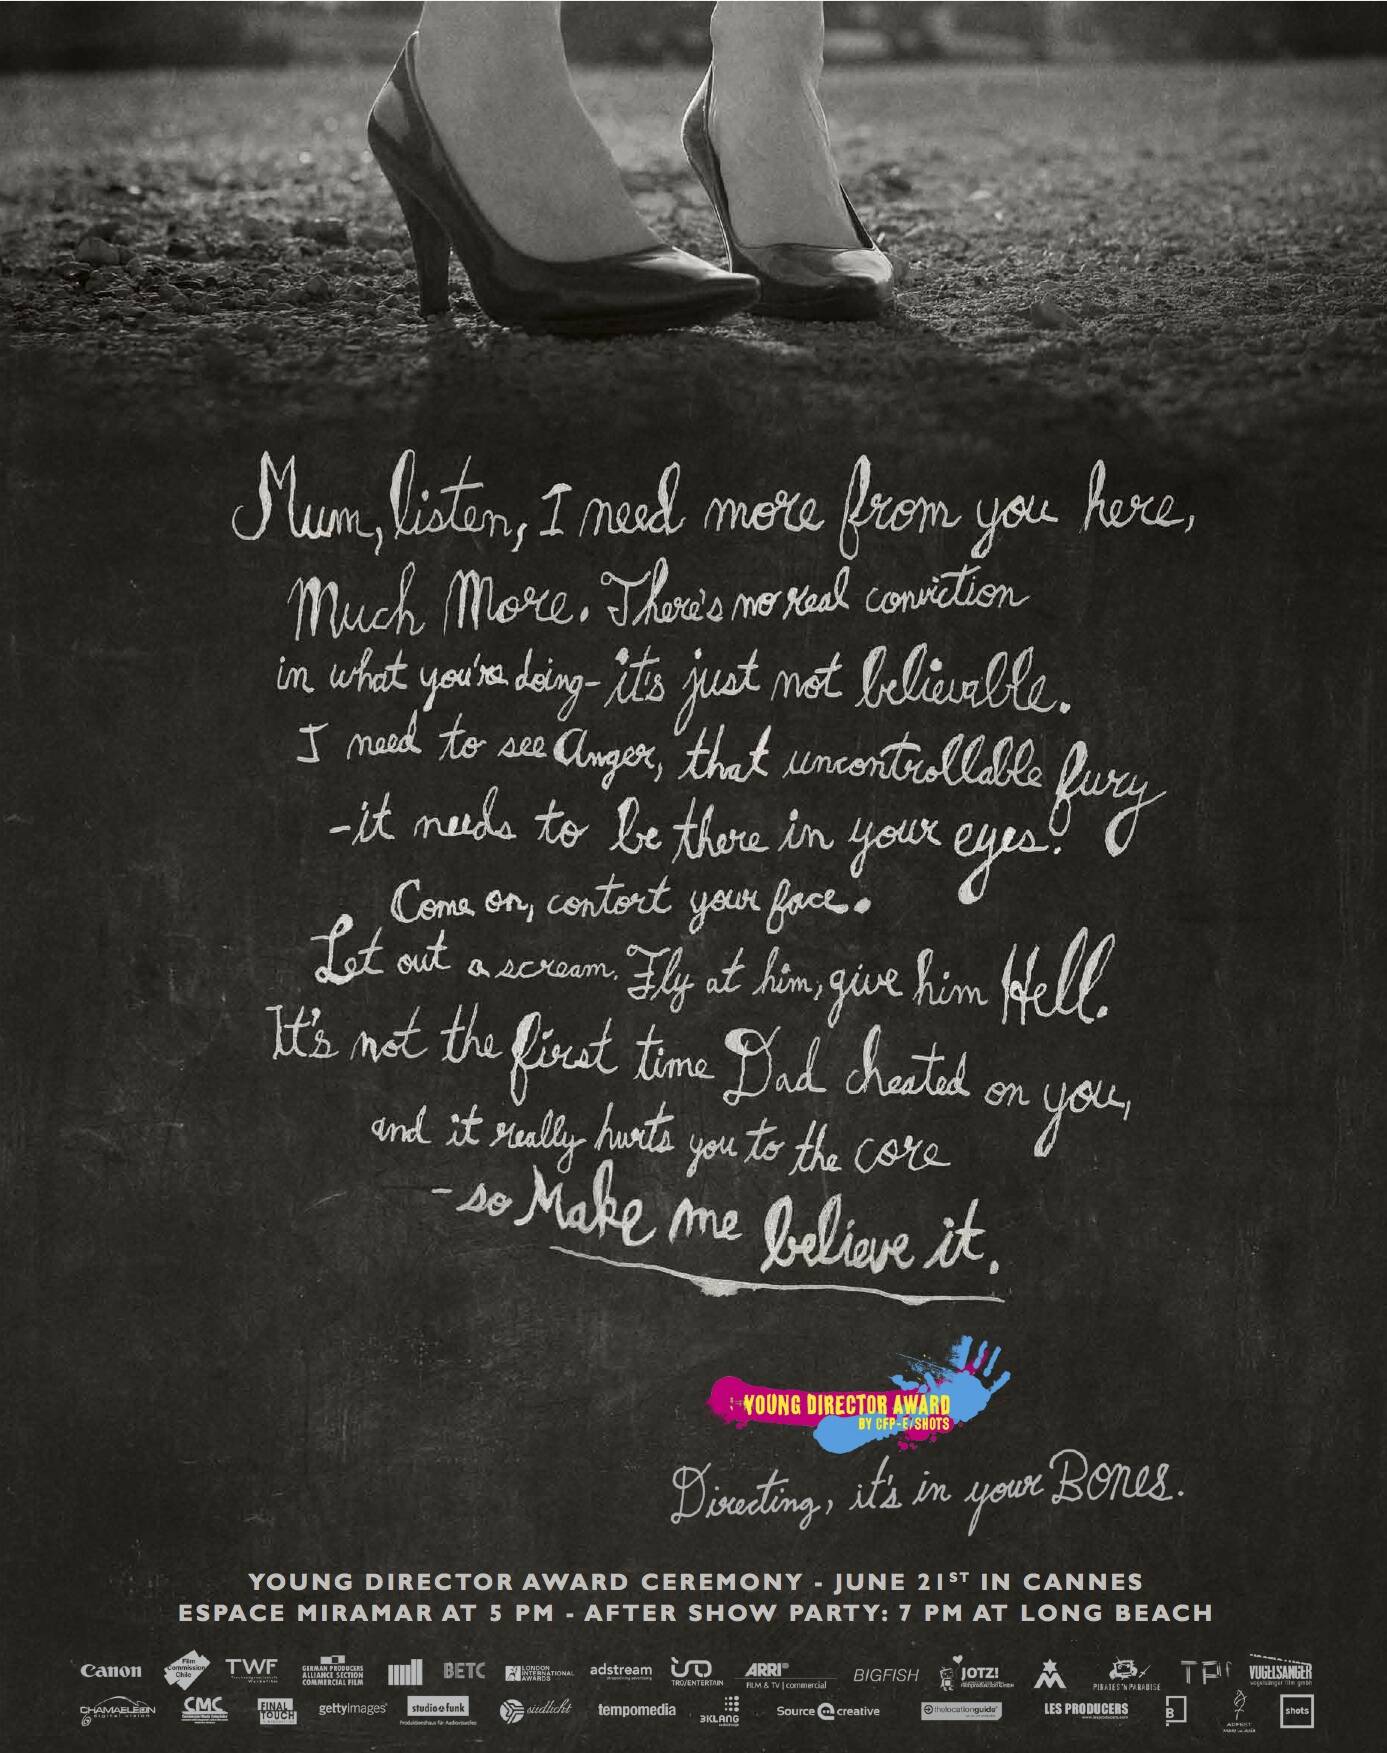 Mum, listen, I need more from you here,
Much More. There's no real conviction
in what you're doing - it's just not believable.
I need to see Anger, that uncontrollable fury
- it needs to be there in your eyes!
Come on, contort your face.
Let out a scream. Fly at him, give him Hell.
It's not the first time Dad cheated on you,
and it really hurts you to the core
- so Make me believe it.
YOUNG DIRECTOR AWARD
BY CFP-E/SHOTS
Directing, it's in your BONES.
YOUNG DIRECTOR AWARD CEREMONY - JUNE 21ST IN CANNES
ESPACE MIRAMAR AT 5 PM - AFTER SHOW PARTY: 7 PM AT LONG BEACH
Canon
Film Commission Chile
TWF
GERMAN PRODUCERS
ALLIANCE SECTION
COMMERCIAL FILM
BETC
LONDON
INTERNATIONAL
AWARDS
adstream
TRO/ENTERTAIN
ARRI®
FILM & TV | commercial
BIGFISH
JOTZ!
PIRATES'N PARADISE
VOGELSANGER
CHAMAELEON
digital vision
CMC
FINAL
TOUCH
gettyimages®
studio funk
Produktionshaus für Audiovisuelles
südlicht
tempomedia
3KLANG
Source creative
thelocationguide
LES PRODUCERS
B
ADFEST
shots